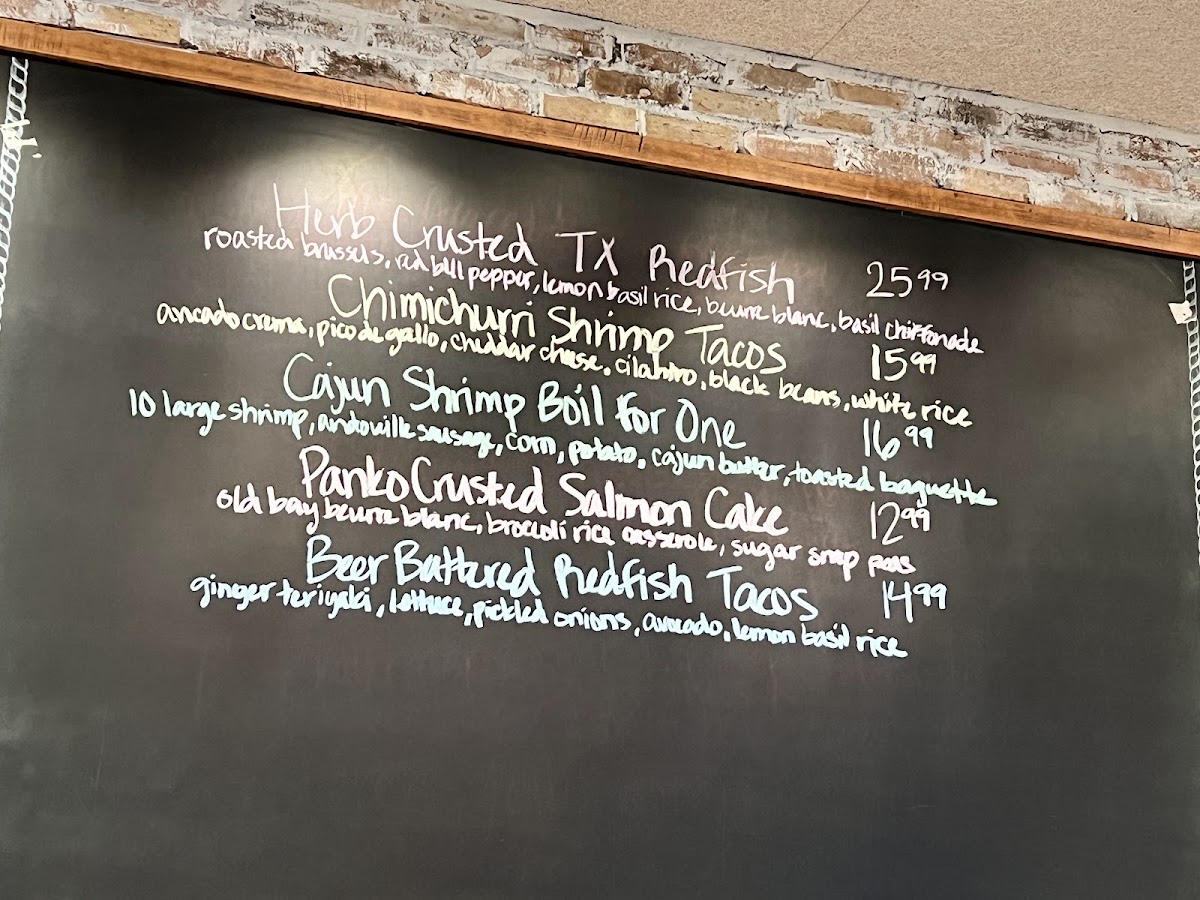 Herb Crusted TX Redfish 25.99
roasted brussels, red bell pepper, lemon basil rice, beurre blanc, basil chiffonade
Chimichurri Shrimp Tacos 15.99
avocado crema, pico de gallo, cheddar cheese, cilantro, black beans, white rice
Cajun Shrimp Boil for One 16.99
10 large shrimp, andouille sausage, corn, potato, cajun butter, toasted baguette
Panko Crusted Salmon Cake 12.99
old bay beurre blanc, broccoli rice casserole, sugar snap peas
Beer Battered Redfish Tacos 14.99
ginger teriyaki, lettuce, pickled onions, avocado, lemon basil rice